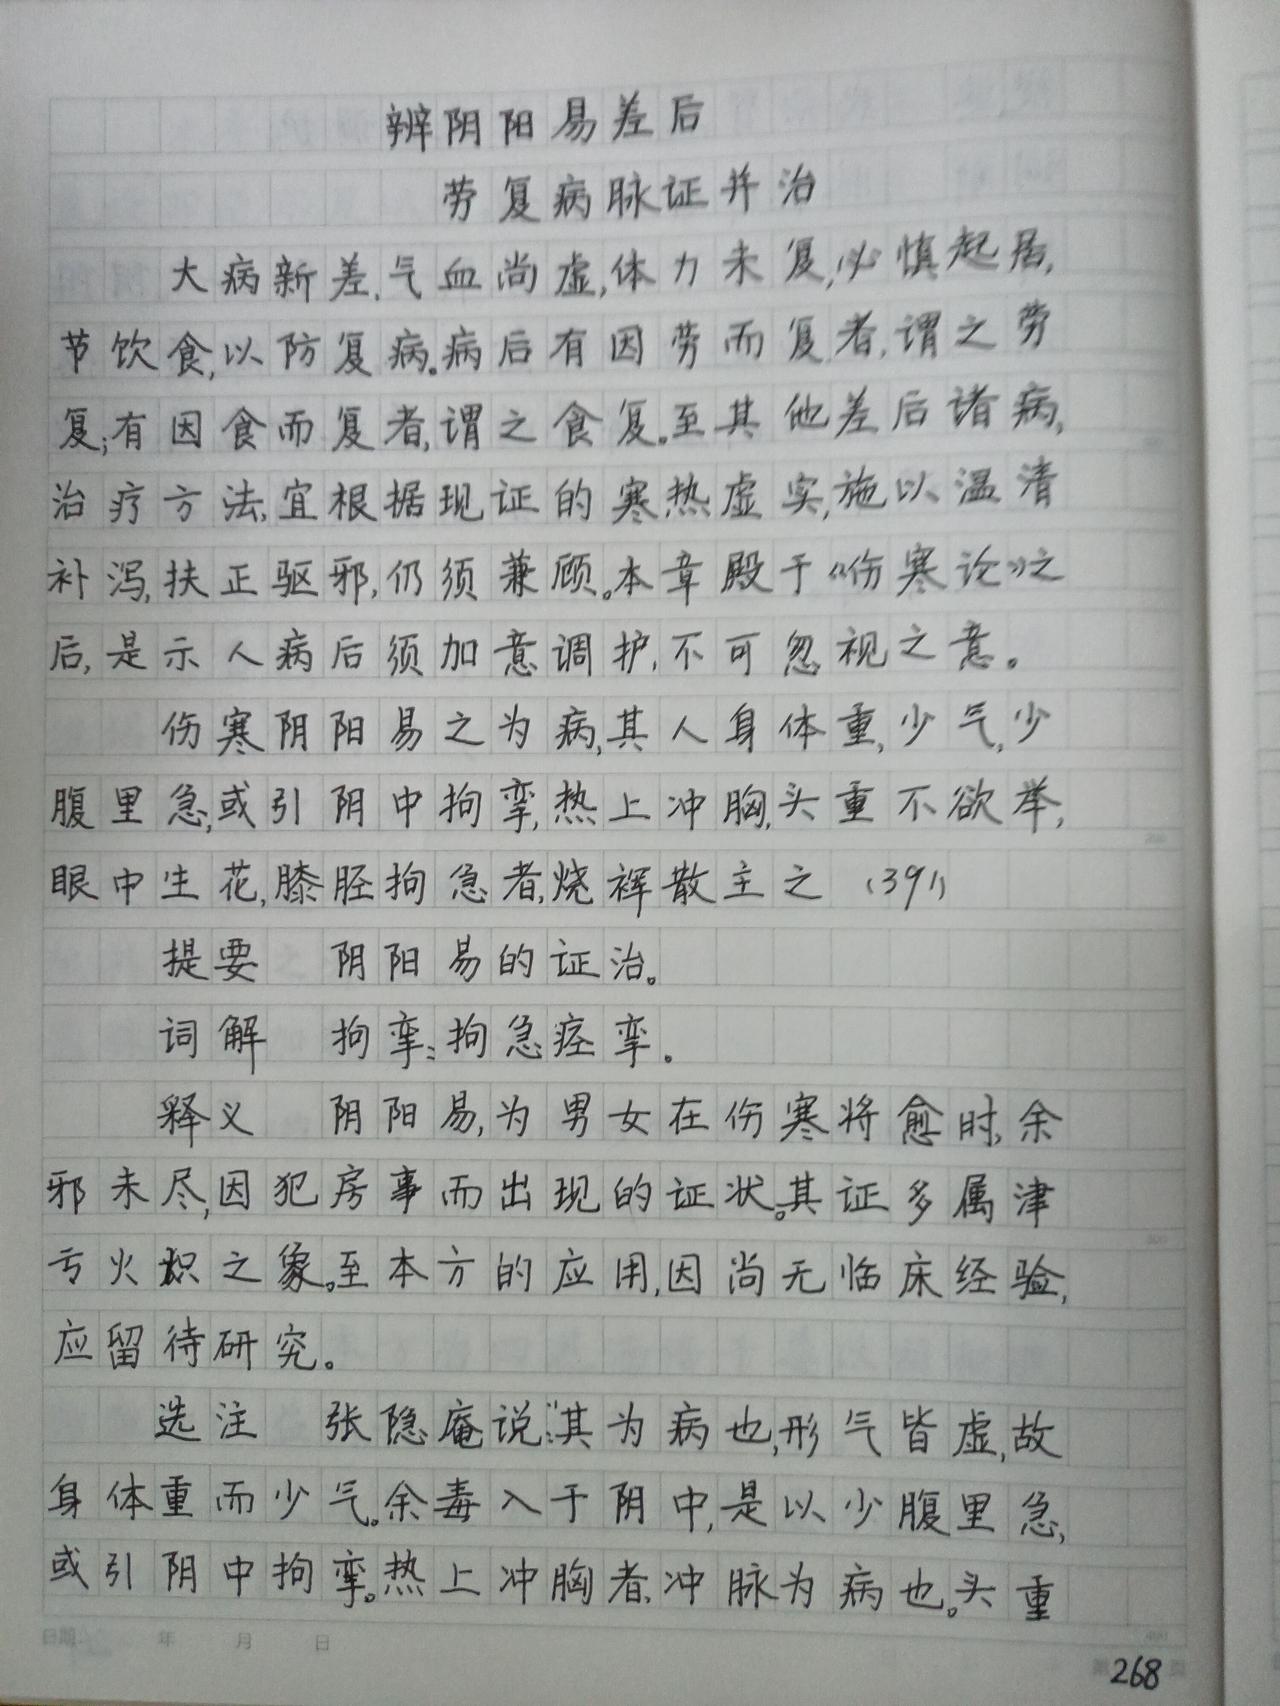 辨阴阳易差后
劳复病脉证并治
大病新差,气血尚虚,体力未复,必慎起居,
节饮食,以防复病。病后有因劳而复者,谓之劳
复;有因食而复者,谓之食复。至其他差后诸病,
治疗方法,宜根据现证的寒热虚实,施以温清
补泻,扶正驱邪,仍须兼顾。本章殿于《伤寒论》之
后,是示人病后须加意调护,不可忽视之意。
伤寒阴阳易之为病,其人身体重,少气,少
腹里急,或引阴中拘挛,热上冲胸,头重不欲举,
眼中生花,膝胫拘急者,烧裈散主之 (391)
提要 阴阳易的证治。
词解 拘挛:拘急痉挛。
释义 阴阳易,为男女在伤寒将愈时,余
邪未尽,因犯房事而出现的证状。其证多属津
亏火炽之象。至本方的应用,因尚无临床经验,
应留待研究。
选注 张隐庵说:“其为病也,形气皆虚,故
身体重而少气。余毒入于阴中,是以少腹里急,
或引阴中拘挛。热上冲胸者,冲脉为病也。头重
日期: 年 月 日
第268页